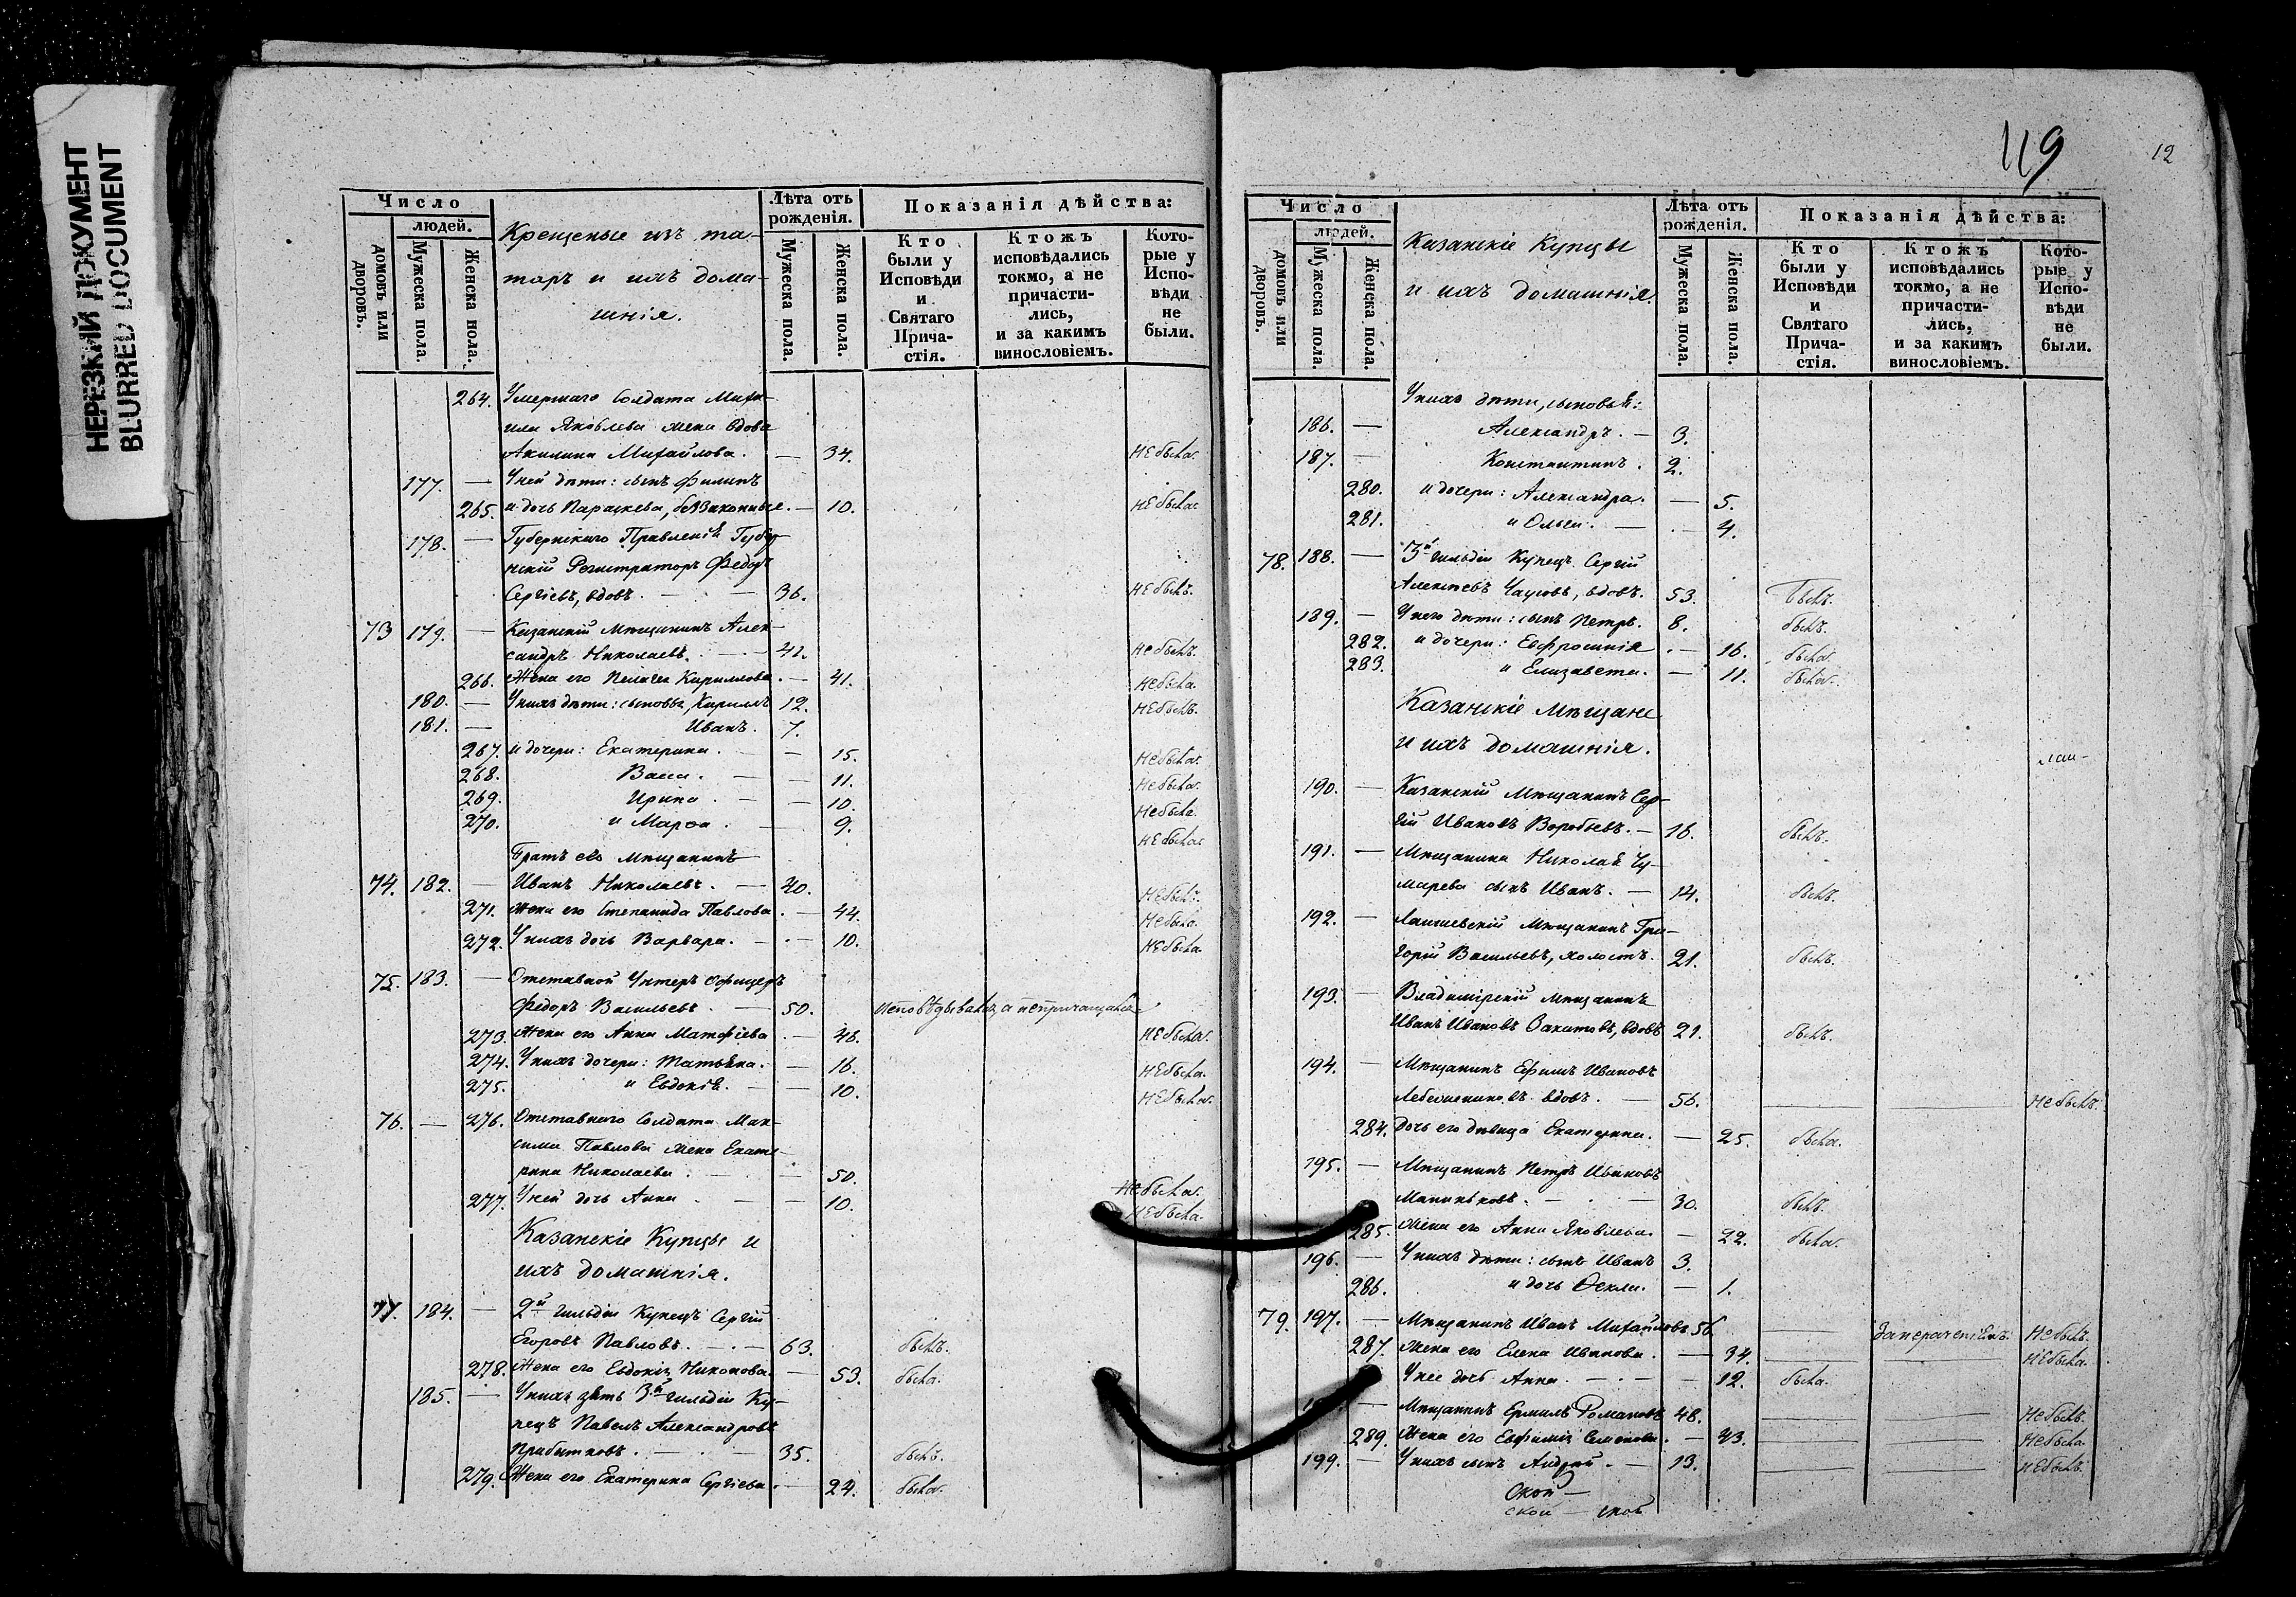 НЕРЕЗКИЙ ДОКУМЕНТ
BLURRED DOCUMENT
Число
людей.
домовъ или дворовъ.
Мужеска пола.
Женска пола.
Крещеные изъ та-
таръ и ихъ дома-
шнія.
Лѣта отъ рожденія.
Мужеска пола.
Женска пола.
Показанія дѣйства:
Кто были у Исповѣди и Святаго Прича-стія.
Ктожъ исповѣдались токмо, а не причасти-лись, и за какимъ винословіемъ.
Кото-рые у Испо-вѣди не были.
264. Умершаго Солдата Миха-
ила Яковлева жена вдова
Акилина Михайлова. — 34. не была.
177. — У ней дѣти: сынъ Филипъ
265. и дочь Параскева, беззаконные. — 10. не была.
178. — Губернскаго Правленія Губер-
нскій Регистраторъ Федоръ
Сергіевъ, вдовъ. — 36. не былъ.
73 179. — Казанскій Мѣщанинъ Алек-
сандръ Николаевъ. — 42. не былъ.
266. Жена его Пелагея Кириллова. — 41. не была.
180. — У нихъ дѣти: сыновья, Кириллъ 12. не былъ.
181. — Иванъ. 7.
267. и дочери: Екатерина. — 15. не была.
268. Васса. — 11. не была.
269. Ирина. — 10. не была.
270. и Марѳа. — 9. не была.
Братъ его мѣщанинъ
74. 182. — Иванъ Николаевъ. — 40. не былъ.
271. Жена его Степанида Павлова. — 44. не была.
272. У нихъ дочь Варвара. — 10. не была.
75. 183. — Отставной Унтеръ Офицеръ
Федоръ Васильевъ. — 50. исповѣдывался а непричащался
273. Жена его Анна Матфіева. — 46. не была.
274. У нихъ дочери: Татьяна. — 16. не была.
275. и Евдокія. — 10. не была.
76. — 276. Отставнаго Солдата Мак-
сима Павлова жена Екате-
рина Николаева. — 50. не была.
277. У ней дочь Анна — 10. не была.
Казанскіе Купцы и
ихъ домашнія.
77. 184. — 2й гильдіи Купецъ Сергій
Егоровъ Павловъ. — 63. былъ.
278. Жена его Евдокія Никонова. — 53. была.
185. — У нихъ зять 3й гильдіи Ку-
пецъ Павелъ Александровъ
Прибытковъ. — 35. былъ.
279. Жена его Екатерина Сергіева. — 24. была.
119
12
Число
людей.
домовъ или дворовъ.
Мужеска пола.
Женска пола.
Казанскіе Купцы
и ихъ домашнія
Лѣта отъ рожденія.
Мужеска пола.
Женска пола.
Показанія дѣйства:
Кто были у Исповѣди и Святаго Прича-стія.
Ктожъ исповѣдались токмо, а не причасти-лись, и за какимъ винословіемъ.
Кото-рые у Испо-вѣди не были.
У нихъ дѣти, сыновья:
186. — Александръ. — 3.
187. — Константинъ. 2.
280. и дочери: Александра. — 5.
281. и Ольга. — 4.
78. 188. — 3й гильдіи Купецъ Сергій
Алексѣевъ, вдовъ. 53. Былъ.
189. — У него дѣти: сынъ Петръ. 8. былъ.
282. и дочери: Евфросинія. — 16. была.
283. и Елизавета. — 11. была.
Казанскіе Мѣщане
и ихъ домашнія.
190. — Казанскій Мѣщанинъ Сер-
гій Ивановъ Воробьевъ. — 16. былъ.
191. — Мѣщанина Николая Чу-
марева сынъ Иванъ. — 14. былъ.
192. — Лаишевскій Мѣщанинъ Гри-
горій Васильевъ, холостъ. 21. былъ.
193. — Владимірскій мѣщанинъ
Иванъ Ивановъ, вдовъ 21. былъ.
194. — Мѣщанинъ Ефимъ Ивановъ
вдовъ. — 56. не былъ.
284. Дочь его дѣвица Екатерина. — 25. была.
195. — Мѣщанинъ Петръ Ивановъ
30. былъ.
285. Жена его Анна Яковлева. — 22. была.
196. — У нихъ дѣти: сынъ Иванъ 3.
286. и дочь Ѳекла. — 1.
79. 197. — Мѣщанинъ Иванъ Михайловъ 56. не былъ.
287. Жена его Елена Иванова. — 34. не была.
У нее дочь Анна. — 12. была.
— Мѣщанинъ Ермилъ Романовъ 48. не былъ.
289. Жена его Евфимія Семенова. — 43. не была.
199. — У нихъ сынъ Андрей. — 13. не былъ.
ской —
ской —